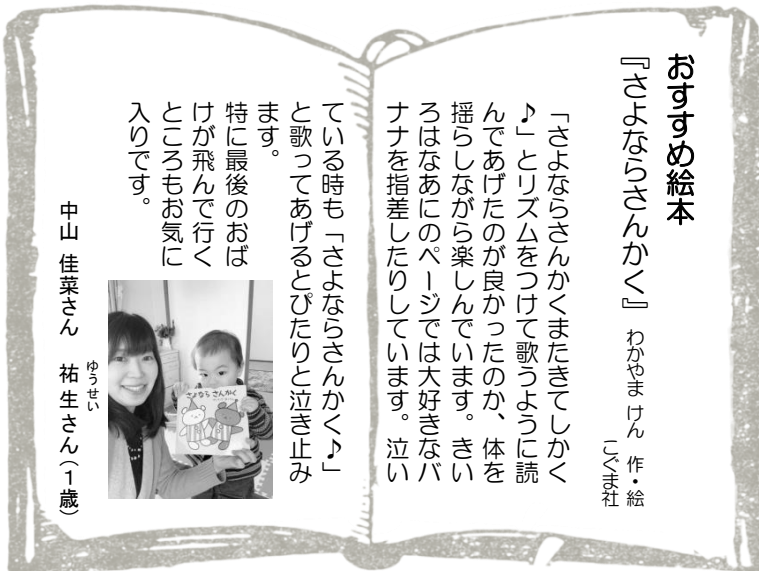 おすすめ絵本
『さよならさんかく』 わかやま けん 作・絵
こぐま社
「さよならさんかくまたきてしかく
♪」とリズムをつけて歌うように読
んであげたのが良かったのか、体を
揺らしながら楽しんでいます。きい
ろはなあにのページでは大好きなバ
ナナを指差したりしています。泣い
ている時も「さよならさんかく♪」
と歌ってあげるとぴたりと泣き止み
ます。
特に最後のおば
けが飛んで行く
ところもお気に
入りです。
さよなら さんかく
ゆうせい
中山 佳菜さん 祐生さん(1歳)